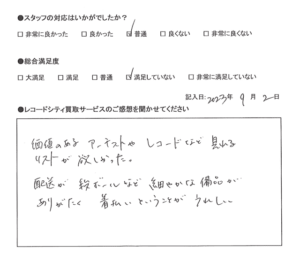 ●スタッフの対応はいかがでしたか?
□ 非常に良かった □ 良かった ☑ 普通 □ 良くない □ 非常に良くない
●総合満足度
□ 大満足 □ 満足 □ 普通 ☑ 満足していない □ 非常に満足していない
記入日: 2023年 9月 2日
●レコードシティ買取サービスのご感想を聞かせてください
価値のある アーティストや レコードなど 見れる
リストが 欲しかった。
配送が 段ボールなど 細やかな 備品が
ありがたく 着払い ということが うれしい